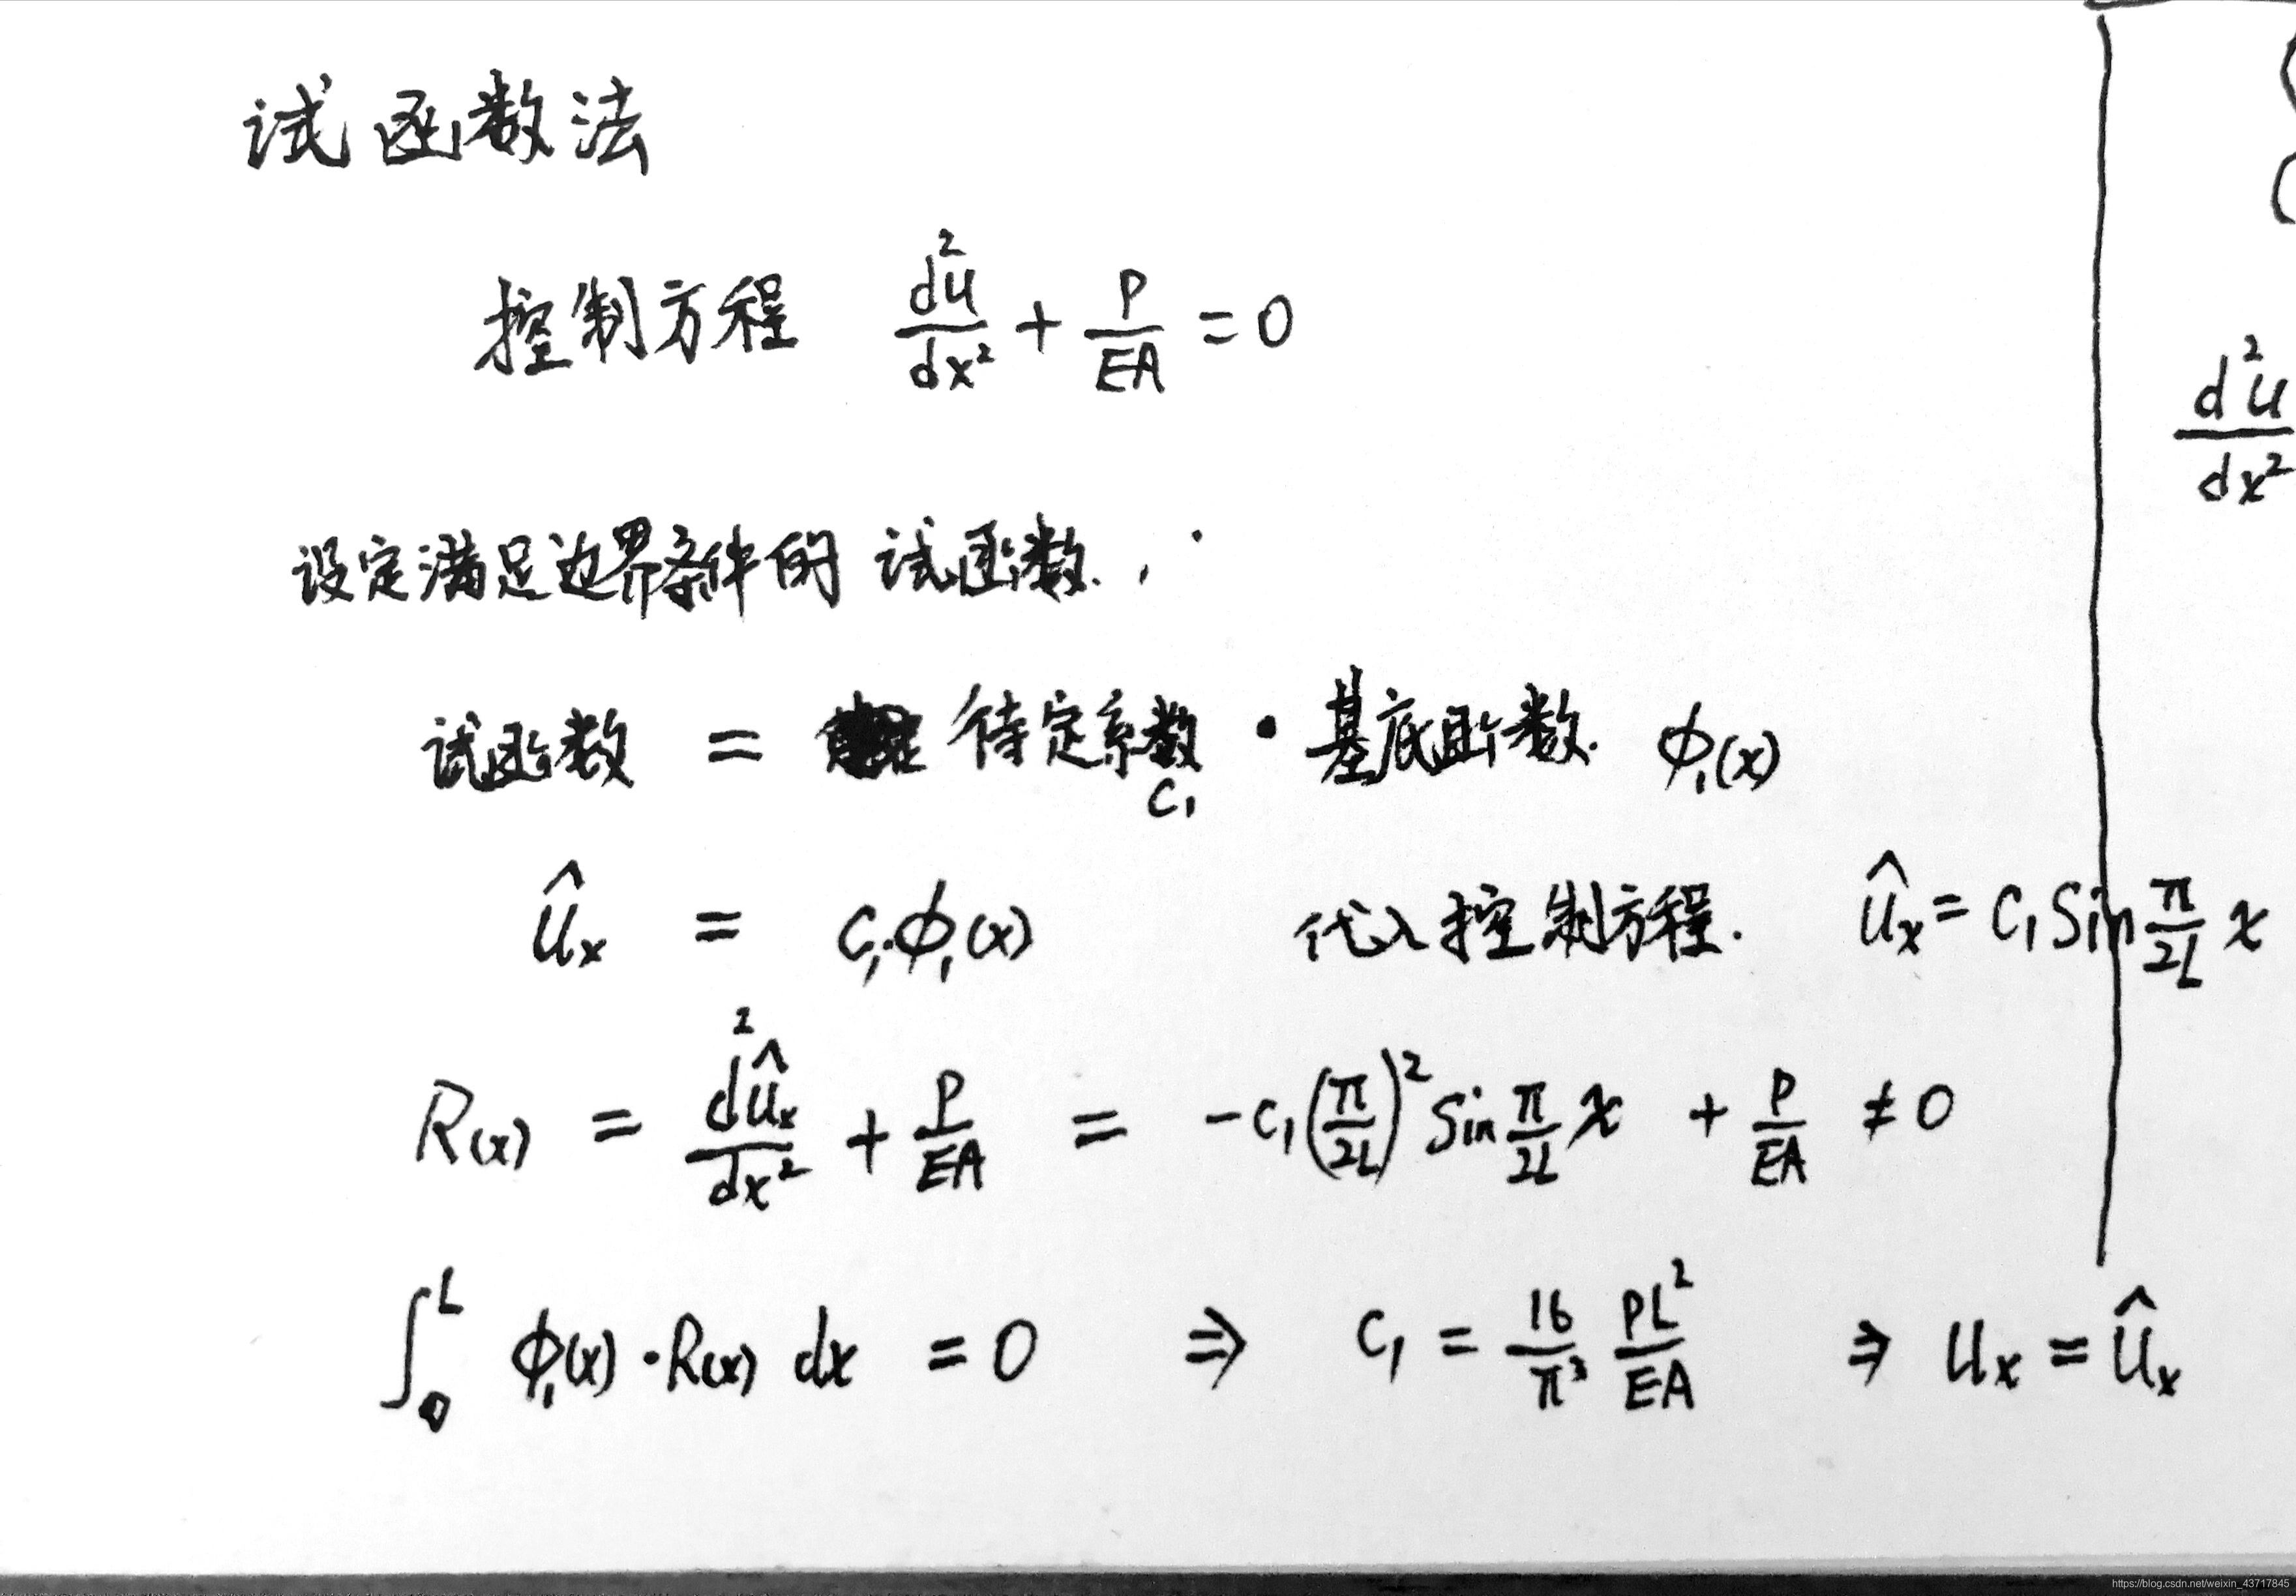 试函数法
控制方程 d²u/dx² + P/EA = 0
设定满足边界条件的 试函数.,
试函数 = 待定系数 C₁ · 基底函数. ϕ₁(x)
û_x = C₁·ϕ₁(x) 代入控制方程. û_x = C₁ Sin π/2L x
R(x) = d²û_x/dx² + P/EA = -C₁(π/2L)² Sin π/2L x + P/EA ≠ 0
∫₀ᴸ ϕ₁(x)·R(x) dx = 0 ⇒ C₁ = 16/π³ PL²/EA ⇒ u_x = û_x
d²u/dx²
https://blog.csdn.net/weixin_43717845